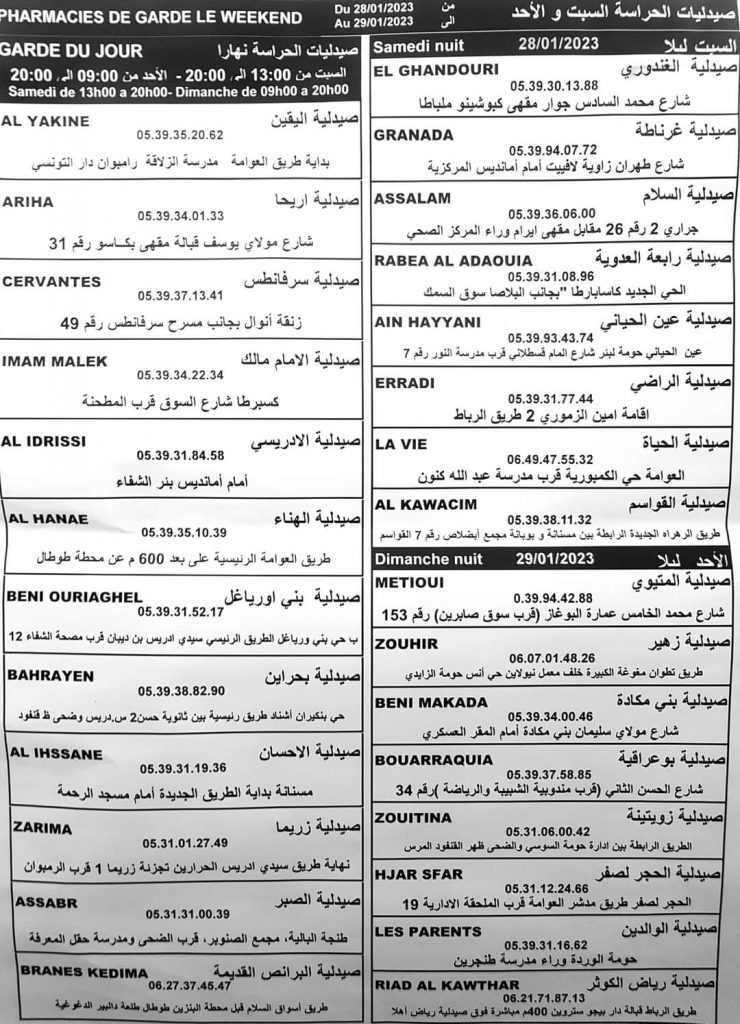 PHARMACIES DE GARDE LE WEEKEND
Du 28/01/2023 من
Au 29/01/2023 الى
صيدليات الحراسة السبت و الأحد
GARDE DU JOUR صيدليات الحراسة نهارا
السبت من 13:00 الى 20:00 - الأحد من 09:00 الى 20:00
Samedi de 13h00 a 20h00- Dimanche de 09h00 a 20h00
AL YAKINE صيدلية اليقين
05.39.35.20.62
بداية طريق العوامة مدرسة الزلاقة رامبوان دار التونسي
ARIHA صيدلية اريحا
05.39.34.01.33
شارع مولاي يوسف قبالة مقهى بكاسو رقم 31
CERVANTES صيدلية سرفانطس
05.39.37.13.41
زنقة أنوال بجانب مسرح سرفانطس رقم 49
IMAM MALEK صيدلية الامام مالك
05.39.34.22.34
كسبرطا شارع السوق قرب المطحنة
AL IDRISSI صيدلية الادريسي
05.39.31.84.58
أمام أمانديس بئر الشفاء
AL HANAE صيدلية الهناء
05.39.35.10.39
طريق العوامة الرئيسية على بعد 600 م عن محطة طوطال
BENI OURIAGHEL صيدلية بني اورياغل
05.39.31.52.17
ب حي بني ورياغل الطريق الرئيسي سيدي ادريس بن ديبان قرب مصحة الشفاء 12
BAHRAYEN صيدلية بحراين
05.39.38.82.90
حي بنكيران أشناد طريق رئيسية بين ثانوية حسن2 س.دريس وضحى ظ قنفود
AL IHSSANE صيدلية الاحسان
05.39.31.19.36
مسنانة بداية الطريق الجديدة أمام مسجد الرحمة
ZARIMA صيدلية زريما
05.31.01.27.49
نهاية طريق سيدي ادريس الحرارين تجزئة زريما 1 قرب الرمبوان
ASSABR صيدلية الصبر
05.31.31.00.39
طنجة البالية، مجمع الصنوبر، قرب الضحى ومدرسة حقل المعرفة
BRANES KEDIMA صيدلية البرانص القديمة
06.27.37.45.47
طريق أسواق السلام قبل محطة البنزين طوطال طلعة دالبير الدغوغية
Samedi nuit 28/01/2023 السبت ليلا
EL GHANDOURI صيدلية الغندوري
05.39.30.13.88
شارع محمد السادس جوار مقهى كبوشينو ملباطا
GRANADA صيدلية غرناطة
05.39.94.07.72
شارع طهران زاوية لافييت أمام أمانديس المركزية
ASSALAM صيدلية السلام
05.39.36.06.00
جراري 2 رقم 26 مقابل مقهى ايرام وراء المركز الصحي
RABEA AL ADAOUIA صيدلية رابعة العدوية
05.39.31.08.96
الحي الجديد كاسابارطا "بجانب البلاصا سوق السمك
AIN HAYYANI صيدلية عين الحياني
05.39.93.43.74
عين الحياني حومة لبنر شارع المام قسطلاني قرب مدرسة النور رقم 7
ERRADI صيدلية الراضي
05.39.31.77.44
اقامة امين الزموري 2 طريق الرباط
LA VIE صيدلية الحياة
06.49.47.55.32
العوامة حي الكمبورية قرب مدرسة عبد الله كنون
AL KAWACIM صيدلية القواسم
05.39.38.11.32
طريق الزهراء الجديدة الرابطة بين مسنانة و بوبانة مجمع أبضلاص رقم 7 القواسم
Dimanche nuit 29/01/2023 الأحد ليلا
METIOUI صيدلية المتيوي
0.39.94.42.88
شارع محمد الخامس عمارة البوغاز (قرب سوق صابرين) رقم 153
ZOUHIR صيدلية زهير
06.07.01.48.26
طريق تطوان مغوغة الكبيرة خلف معمل نيولاين حي أنس حومة الزايدي
BENI MAKADA صيدلية بني مكادة
05.39.34.00.46
شارع مولاي سليمان بني مكادة أمام المقر العسكري
BOUARRAQUIA صيدلية بوعراقية
05.39.37.58.85
شارع الحسن الثاني (قرب مندوبية الشبيبة والرياضة )رقم 34
ZOUITINA صيدلية زويتينة
05.31.06.00.42
الطريق الرابطة بين ادارة حومة السوسي والضحى ظهر القنفود المرس
HJAR SFAR صيدلية الحجر لصفر
05.31.12.24.66
الحجر لصفر طريق مدشر العوامة قرب الملحقة الادارية 19
LES PARENTS صيدلية الوالدين
05.39.31.16.62
حومة الوردة وراء مدرسة طنجرين
RIAD AL KAWTHAR صيدلية رياض الكوثر
06.21.71.87.13
طريق الرباط قبالة دار بيجو ستروين 400م مباشرة فوق صيدلية رياض اهلا